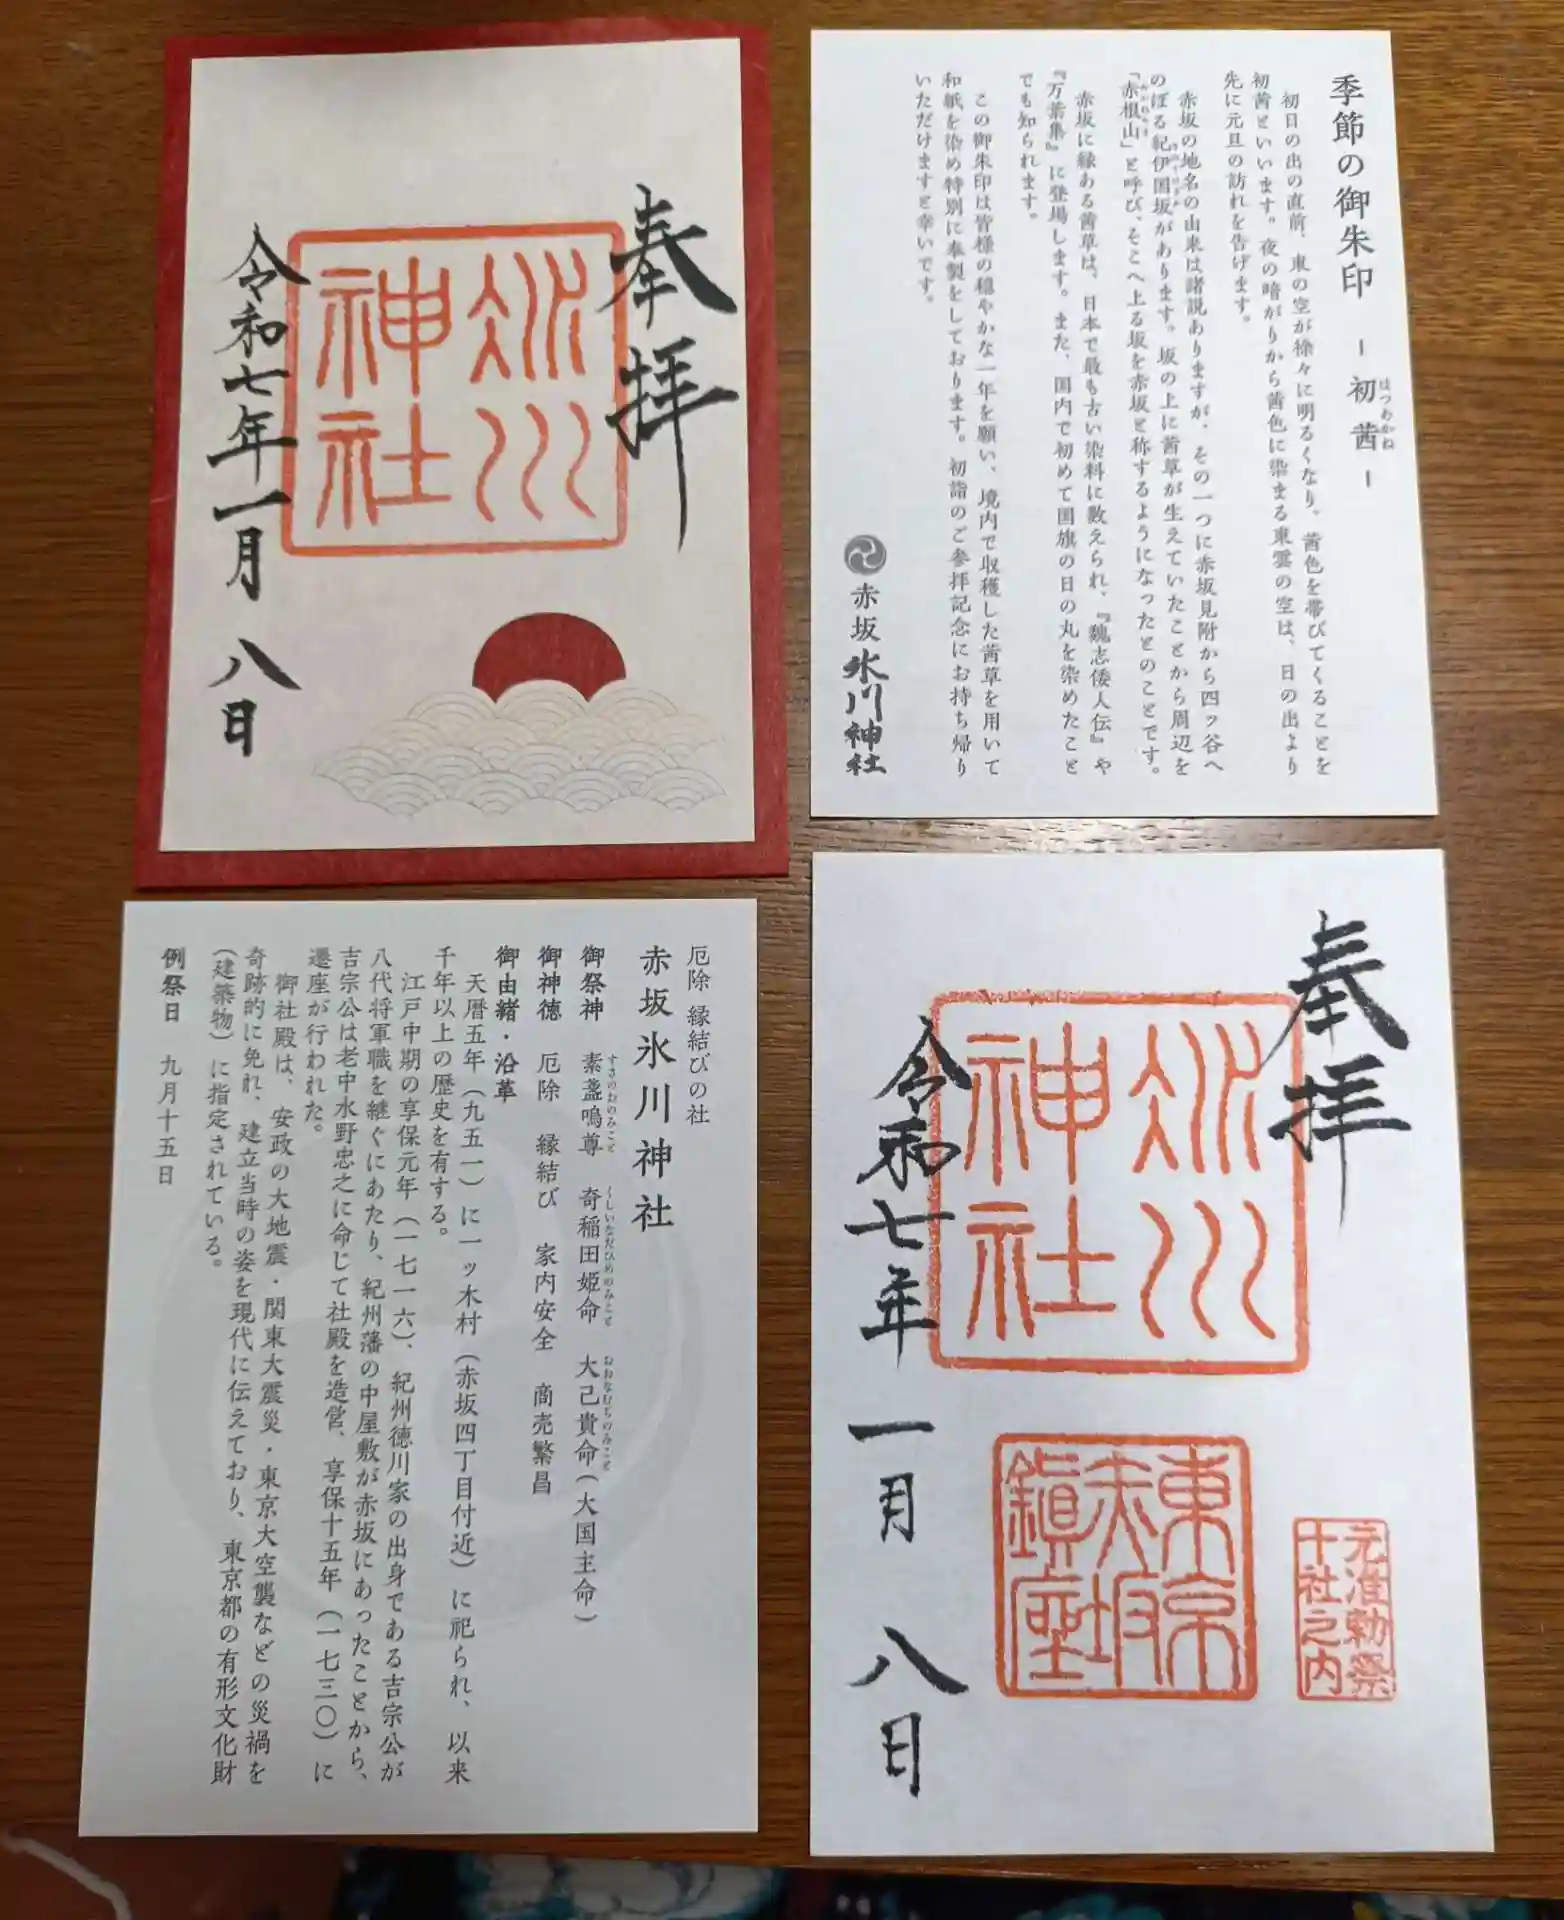 奉拝
氷川
神社
令和七年一月八日
季節の御朱印 ー初茜ー
はつあかね
初日の出の直前、東の空が徐々に明るくなり、茜色を帯びてくることを
初茜といいます。夜の暗がりから茜色に染まる東雲の空は、日の出より
先に元旦の訪れを告げます。
赤坂の地名の由来は諸説ありますが、その一つに赤坂見附から四ッ谷へ
のぼる紀伊国坂があります。坂の上に茜草が生えていたことから周辺を
「赤根山」と呼び、そこへ上る坂を赤坂と称するようになったとのことです。
赤坂に縁ある茜草は、日本で最も古い染料に数えられ、『魏志倭人伝』や
『万葉集』に登場します。また、国内で初めて国旗の日の丸を染めたこと
でも知られます。
この御朱印は皆様の穏やかな一年を願い、境内で収穫した茜草を用いて
和紙を染め特別に奉製をしております。初詣のご参拝記念にお持ち帰り
いただけますと幸いです。
赤坂氷川神社
厄除 縁結びの社
赤坂氷川神社
御祭神 素盞嗚尊 奇稲田姫命 大己貴命(大国主命)
すさのおのみこと くしいなだひめのみこと おおなむぢのみこと
御神徳 厄除 縁結び 家内安全 商売繁昌
御由緒・沿革
天暦五年(九五一)に一ッ木村(赤坂四丁目付近)に祀られ、以来
千年以上の歴史を有する。
江戸中期の享保元年(一七一六)、紀州徳川家の出身である吉宗公が
八代将軍職を継ぐにあたり、紀州藩の中屋敷が赤坂にあったことから、
吉宗公は老中水野忠之に命じて社殿を造営、享保十五年(一七三〇)に
遷座が行われた。
御社殿は、安政の大地震・関東大震災・東京大空襲などの災禍を
奇跡的に免れ、建立当時の姿を現代に伝えており、東京都の有形文化財
(建築物)に指定されている。
例祭日 九月十五日
奉拝
氷川
神社
元准勅祭
十社之内
東京
赤坂
鎮座
令和七年一月八日